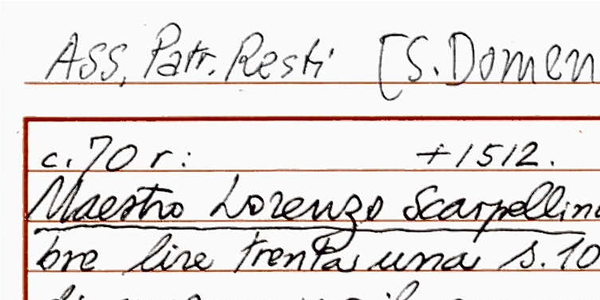 Ass. Patr. Resti [S. Domen
c. 70 r: +1512.
Maestro Lorenzo Scarpellin
bre lire trenta una s. 10